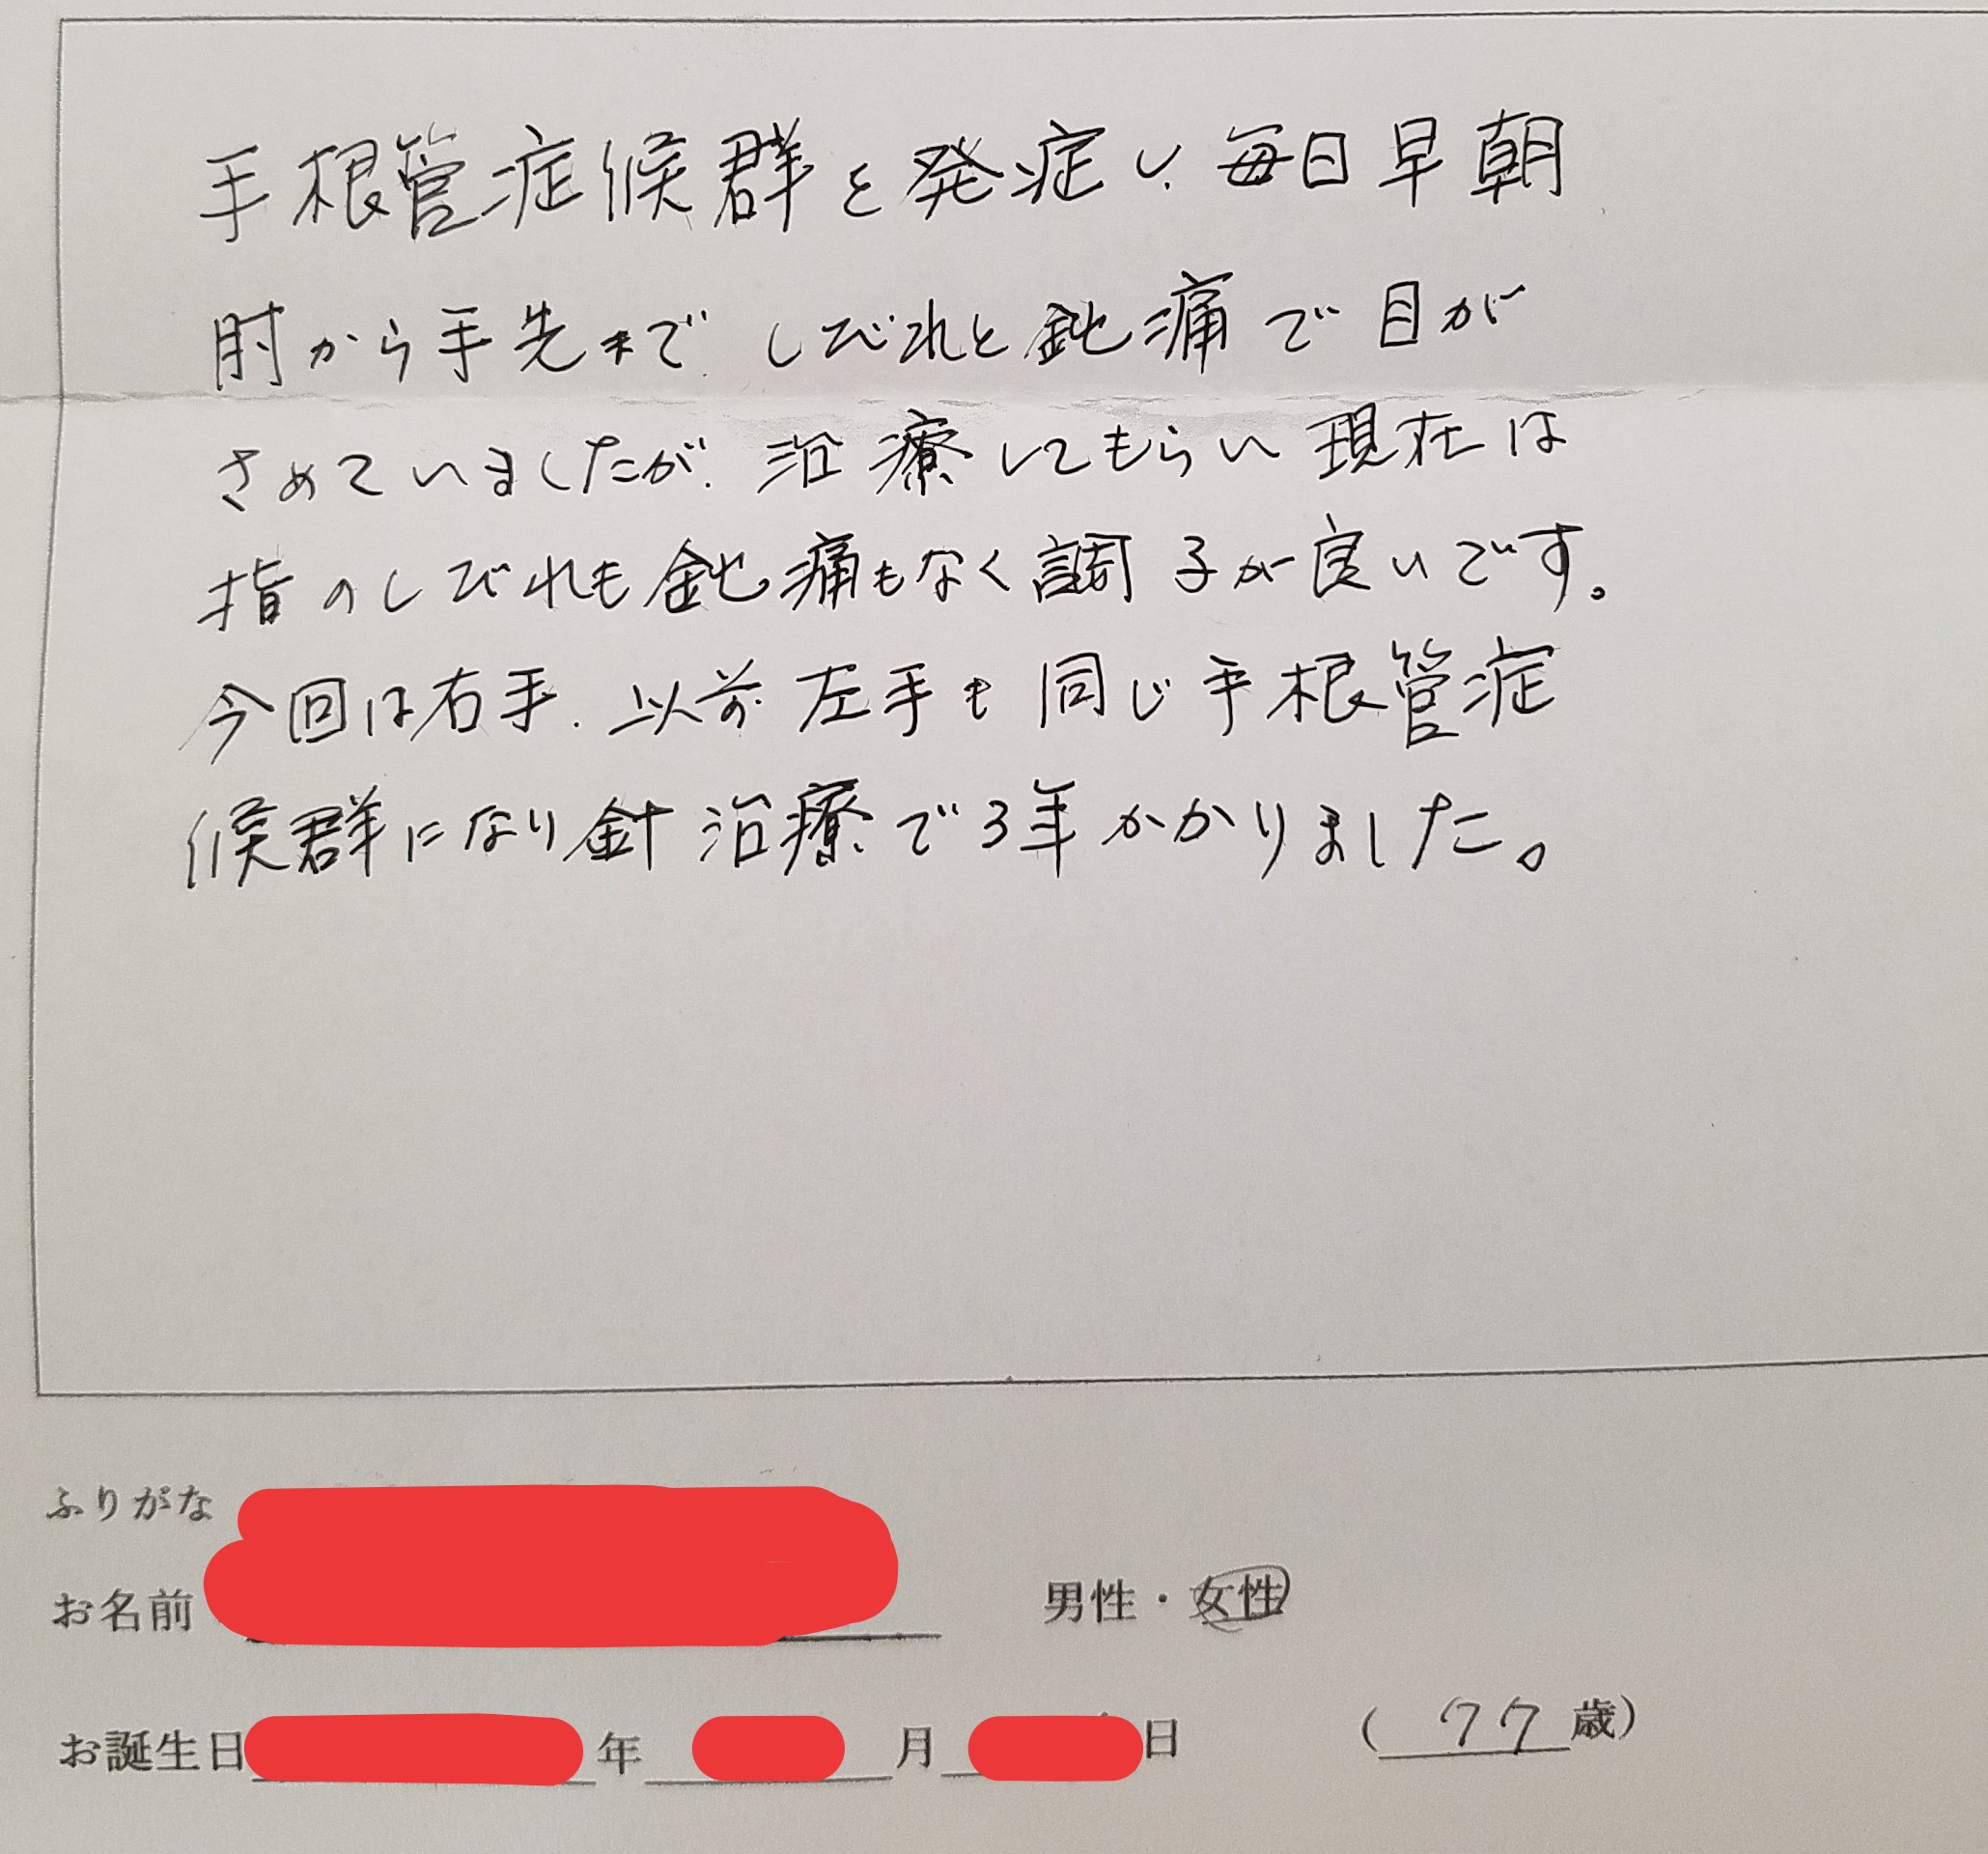 手根管症候群を発症し、毎日早朝
肘から手先まで、しびれと鈍痛で目が
さめていましたが、治療してもらい現在は
指のしびれも鈍痛もなく調子が良いです。
今回は右手、以前左手も同じ手根管症
候群になり針治療で3年かかりました。
ふりがな
お名前 男性・女性
お誕生日 年 月 日 (77歳)